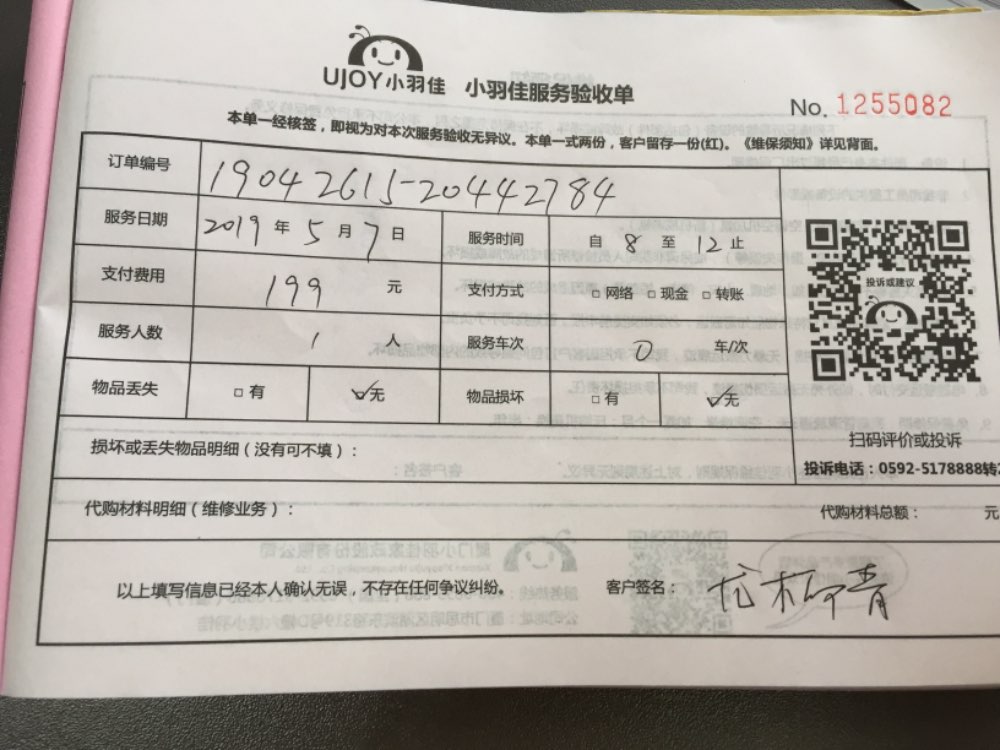 UJOY小羽佳 小羽佳服务验收单
No. 1255082
本单一经核签，即视为对本次服务验收无异议。本单一式两份，客户留存一份(红)。《维保须知》详见背面。
订单编号 19042615-20442784
服务日期 2019年5月7日 服务时间 自8至12止
投诉或建议
支付费用 199 元 支付方式 □网络 □现金 □转账
服务人数 1 人 服务车次 0 车/次
物品丢失 □有 ☑无 物品损坏 □有 ☑无
扫码评价或投诉
损坏或丢失物品明细（没有可不填）：
投诉电话：0592-5178888转
代购材料明细（维修业务）： 代购材料总额： 元
以上填写信息已经本人确认无误，不存在任何争议纠纷。 客户签名：